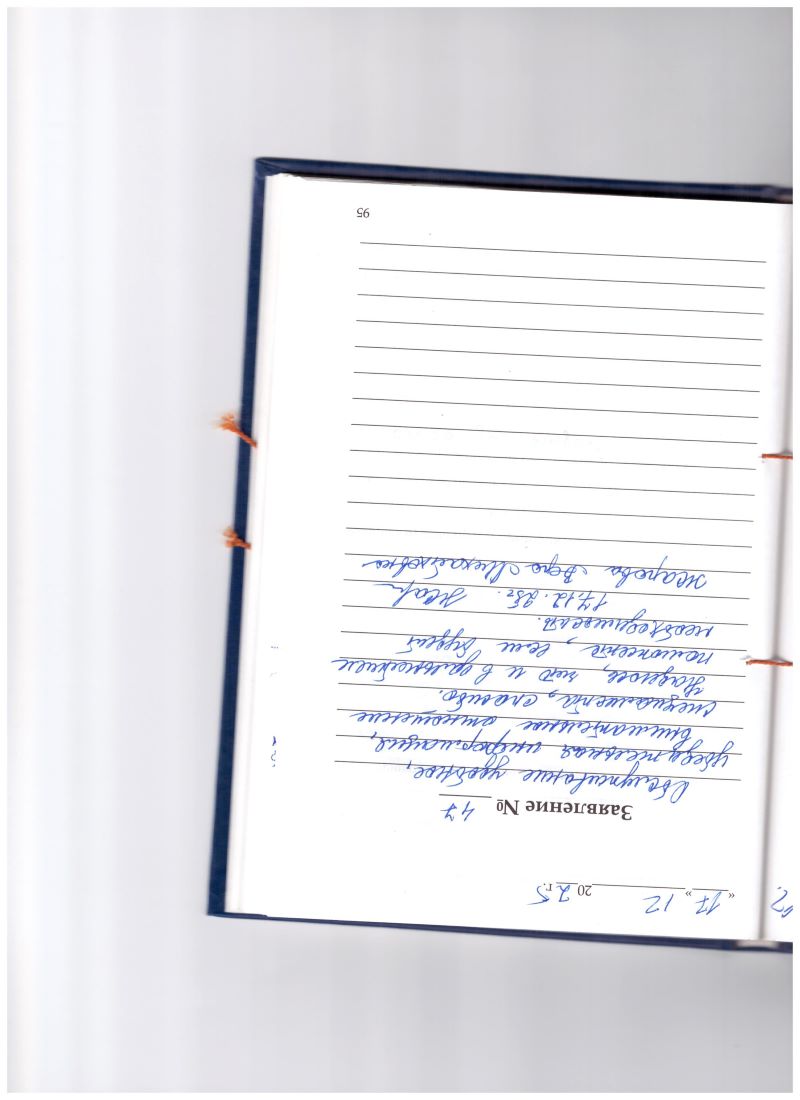 « 17 » 12 20 25 г.
Заявление № 47
Обслуживание удобное,
убедительная информация,
внимательное отношение
специалиста, спасибо.
Надеюсь, что и в дальнейшем
поможете, если будет
необходимость.
17.12.25г.
Жарова Вера Михайловна
95